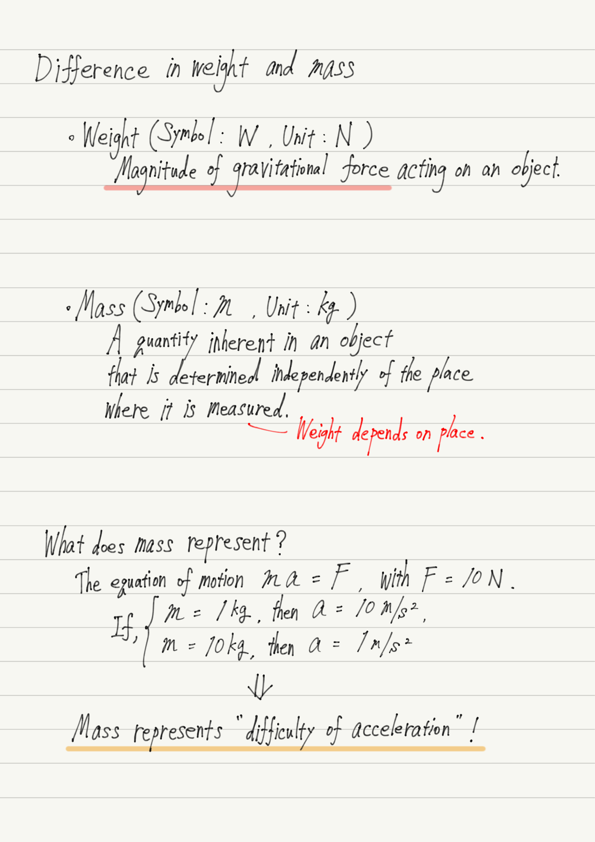 Difference in weight and mass
• Weight (Symbol: W, Unit: N)
Magnitude of gravitational force acting on an object.
• Mass (Symbol: m, Unit: kg)
A quantity inherent in an object
that is determined independently of the place
where it is measured.
Weight depends on place.
What does mass represent?
The equation of motion ma = F, with F = 10 N.
If, { m = 1 kg, then a = 10 m/s²,
m = 10 kg, then a = 1 m/s²
⇓
Mass represents "difficulty of acceleration"!